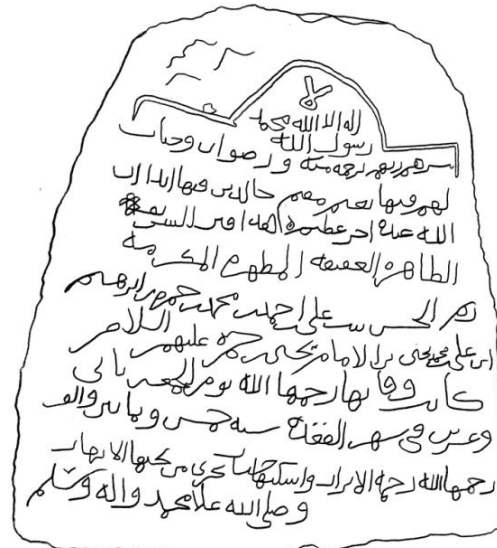 لا اله الا الله محمد
رسول الله
يبشرهم ربهم برحمة منه ورضوان وجنات
لهم فيها نعيم مقيم خالدين فيها ابدا ان
الله عنده اجر عظيم هذا قبر
الطاهرة العفيفة المطهرة المكرمة
بنت علي بن احمد بن محمد بن حمزة بن ابرهيم
ابن علي محمد يحيى بن الامام يحيى حمزة عليهم السلام
كانت وفاتها رحمها الله يوم الجمعة
وعشرين في شهر القعدة سنة خمس والف
رحمها الله رحمة الابرار واسكنها جنات تجري من تحتها الانهار
وصلى الله على محمد واله وسلم